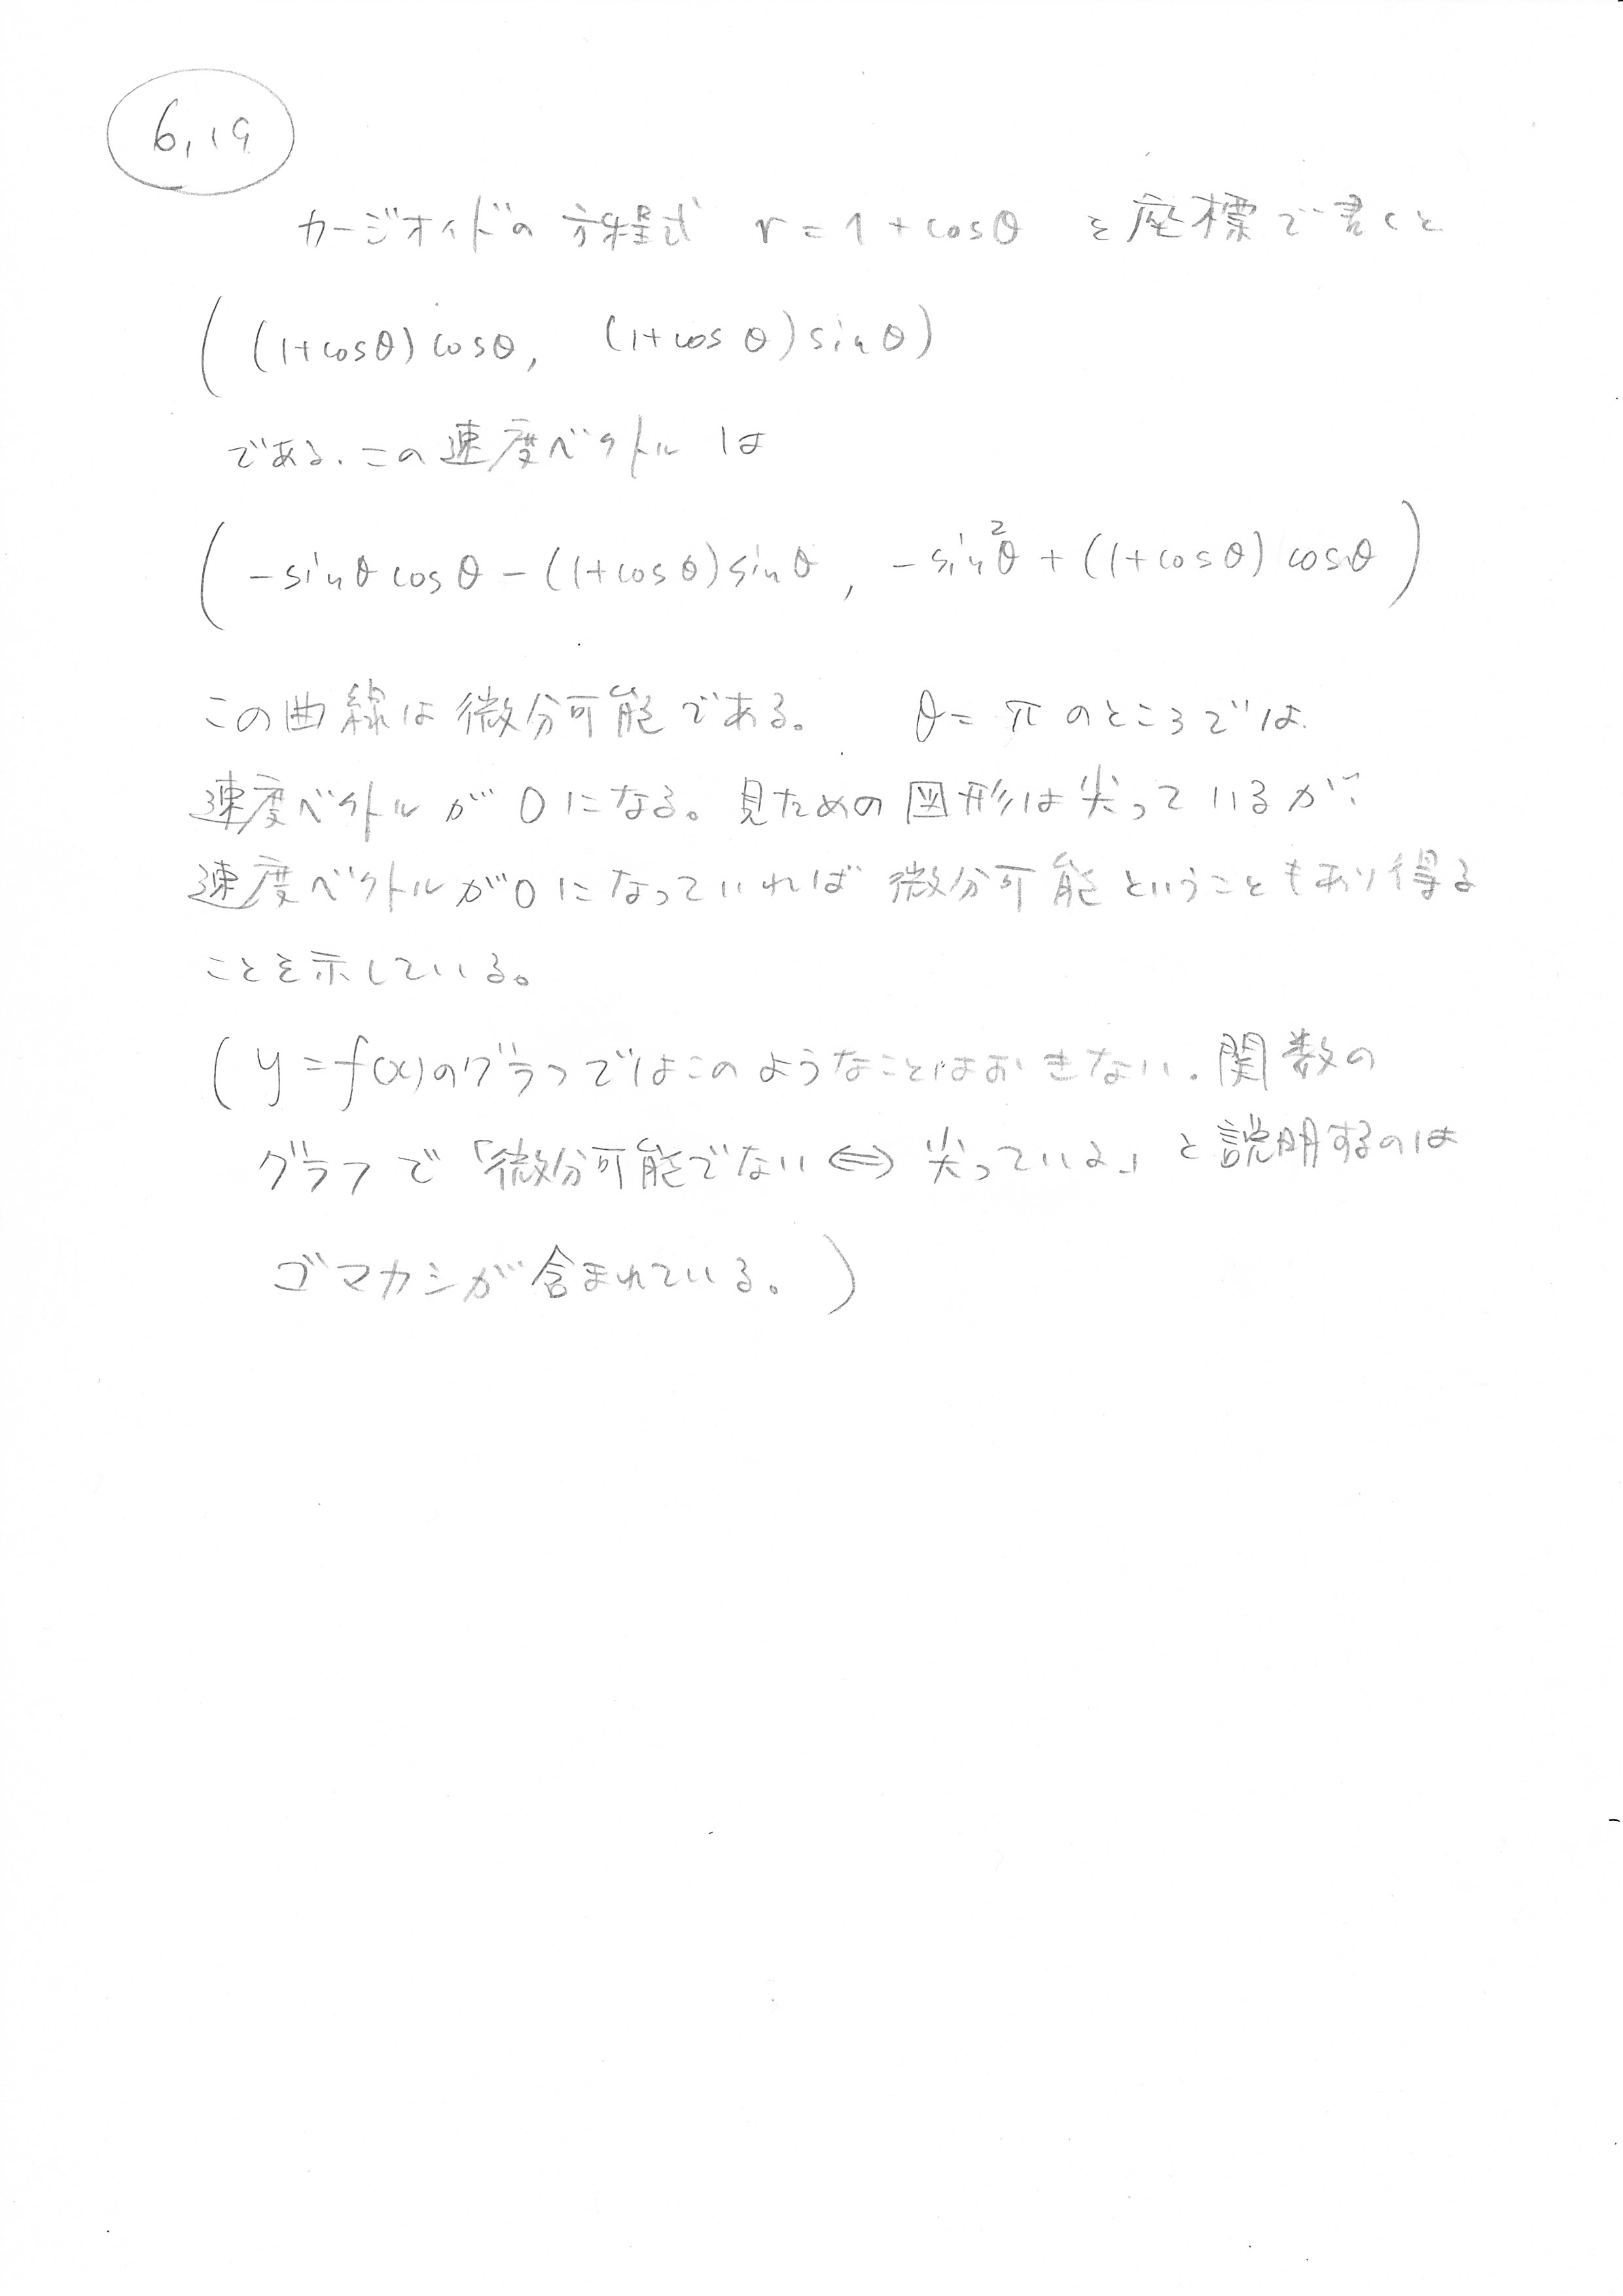 6.19
カージオイドの方程式 r = 1 + cosθ を座標で書くと
( (1+cosθ) cosθ, (1+cos θ) sin θ)
である.この速度ベクトル は
( -sinθ cos θ - (1+cos θ) sin θ, -sin²θ + (1+cosθ) cosθ )
この曲線は微分可能である。 θ = π のところでは
速度ベクトルが 0 になる。見ための図形は尖っているが、
速度ベクトルが0になっていれば 微分可能ということもあり得る
ことを示している。
( y = f(x)のグラフではこのようなことはおきない.関数の
グラフで「微分可能でない ⇔ 尖っている」と説明するのは
ゴマカシが含まれている。)